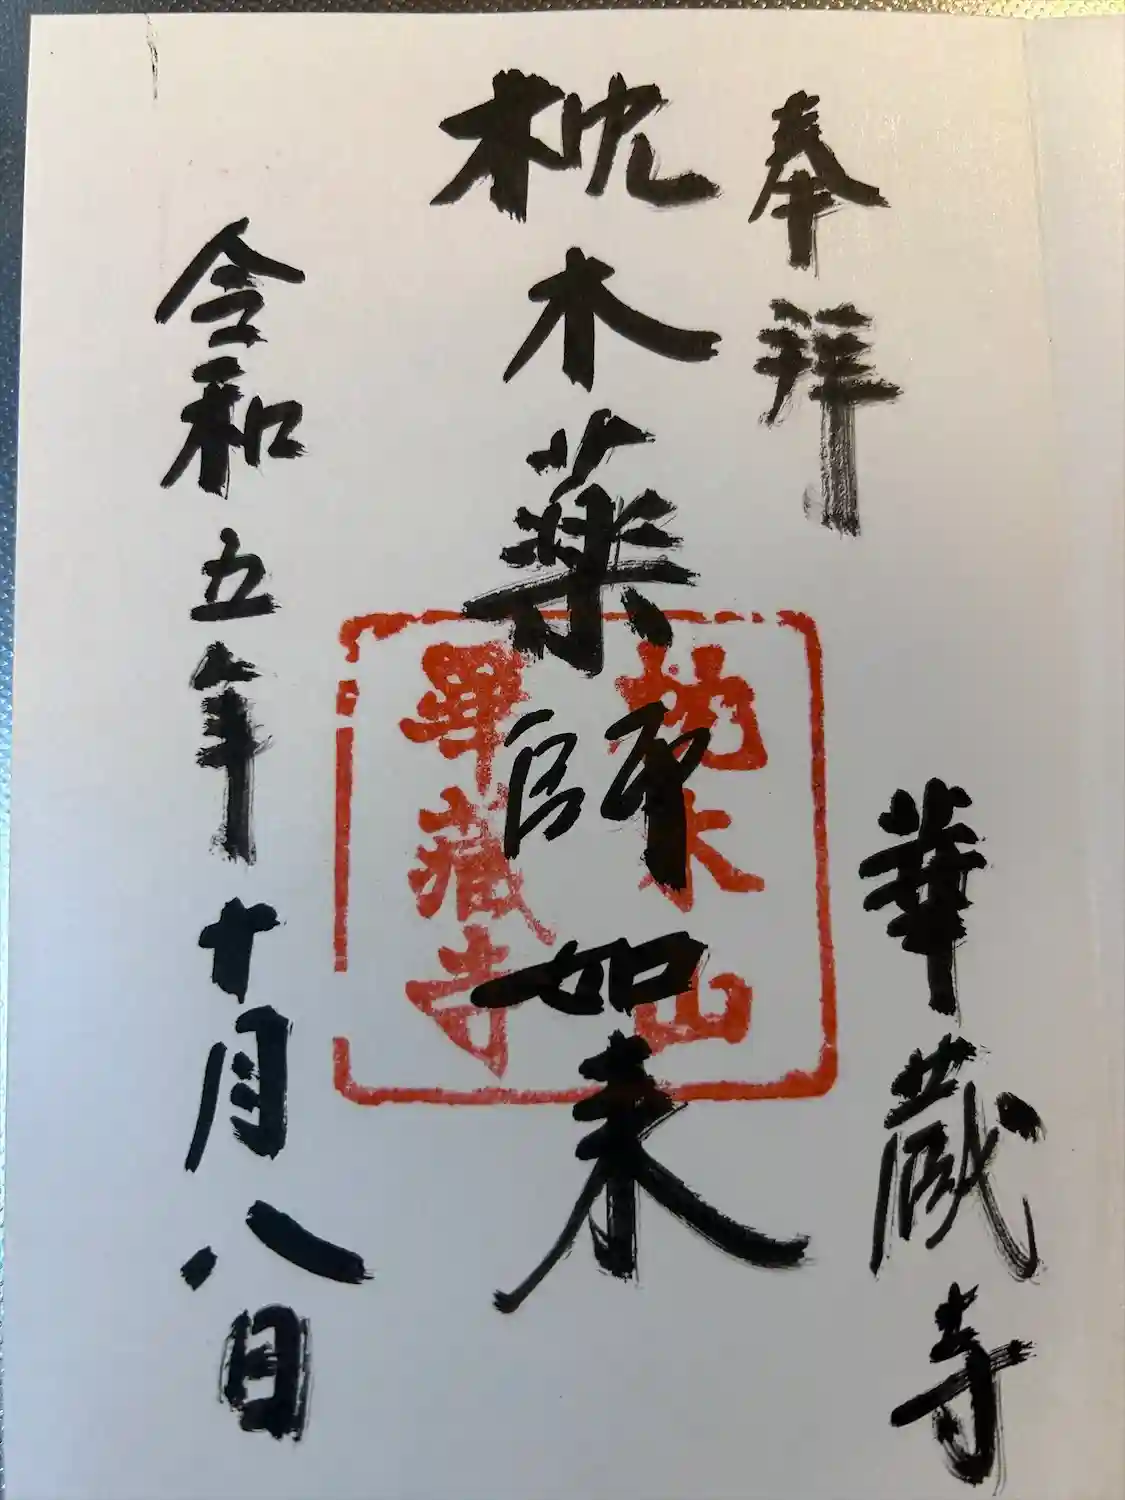 奉拝
華蔵寺
枕木薬師如来
枕木山
華藏寺
令和五年十月八日